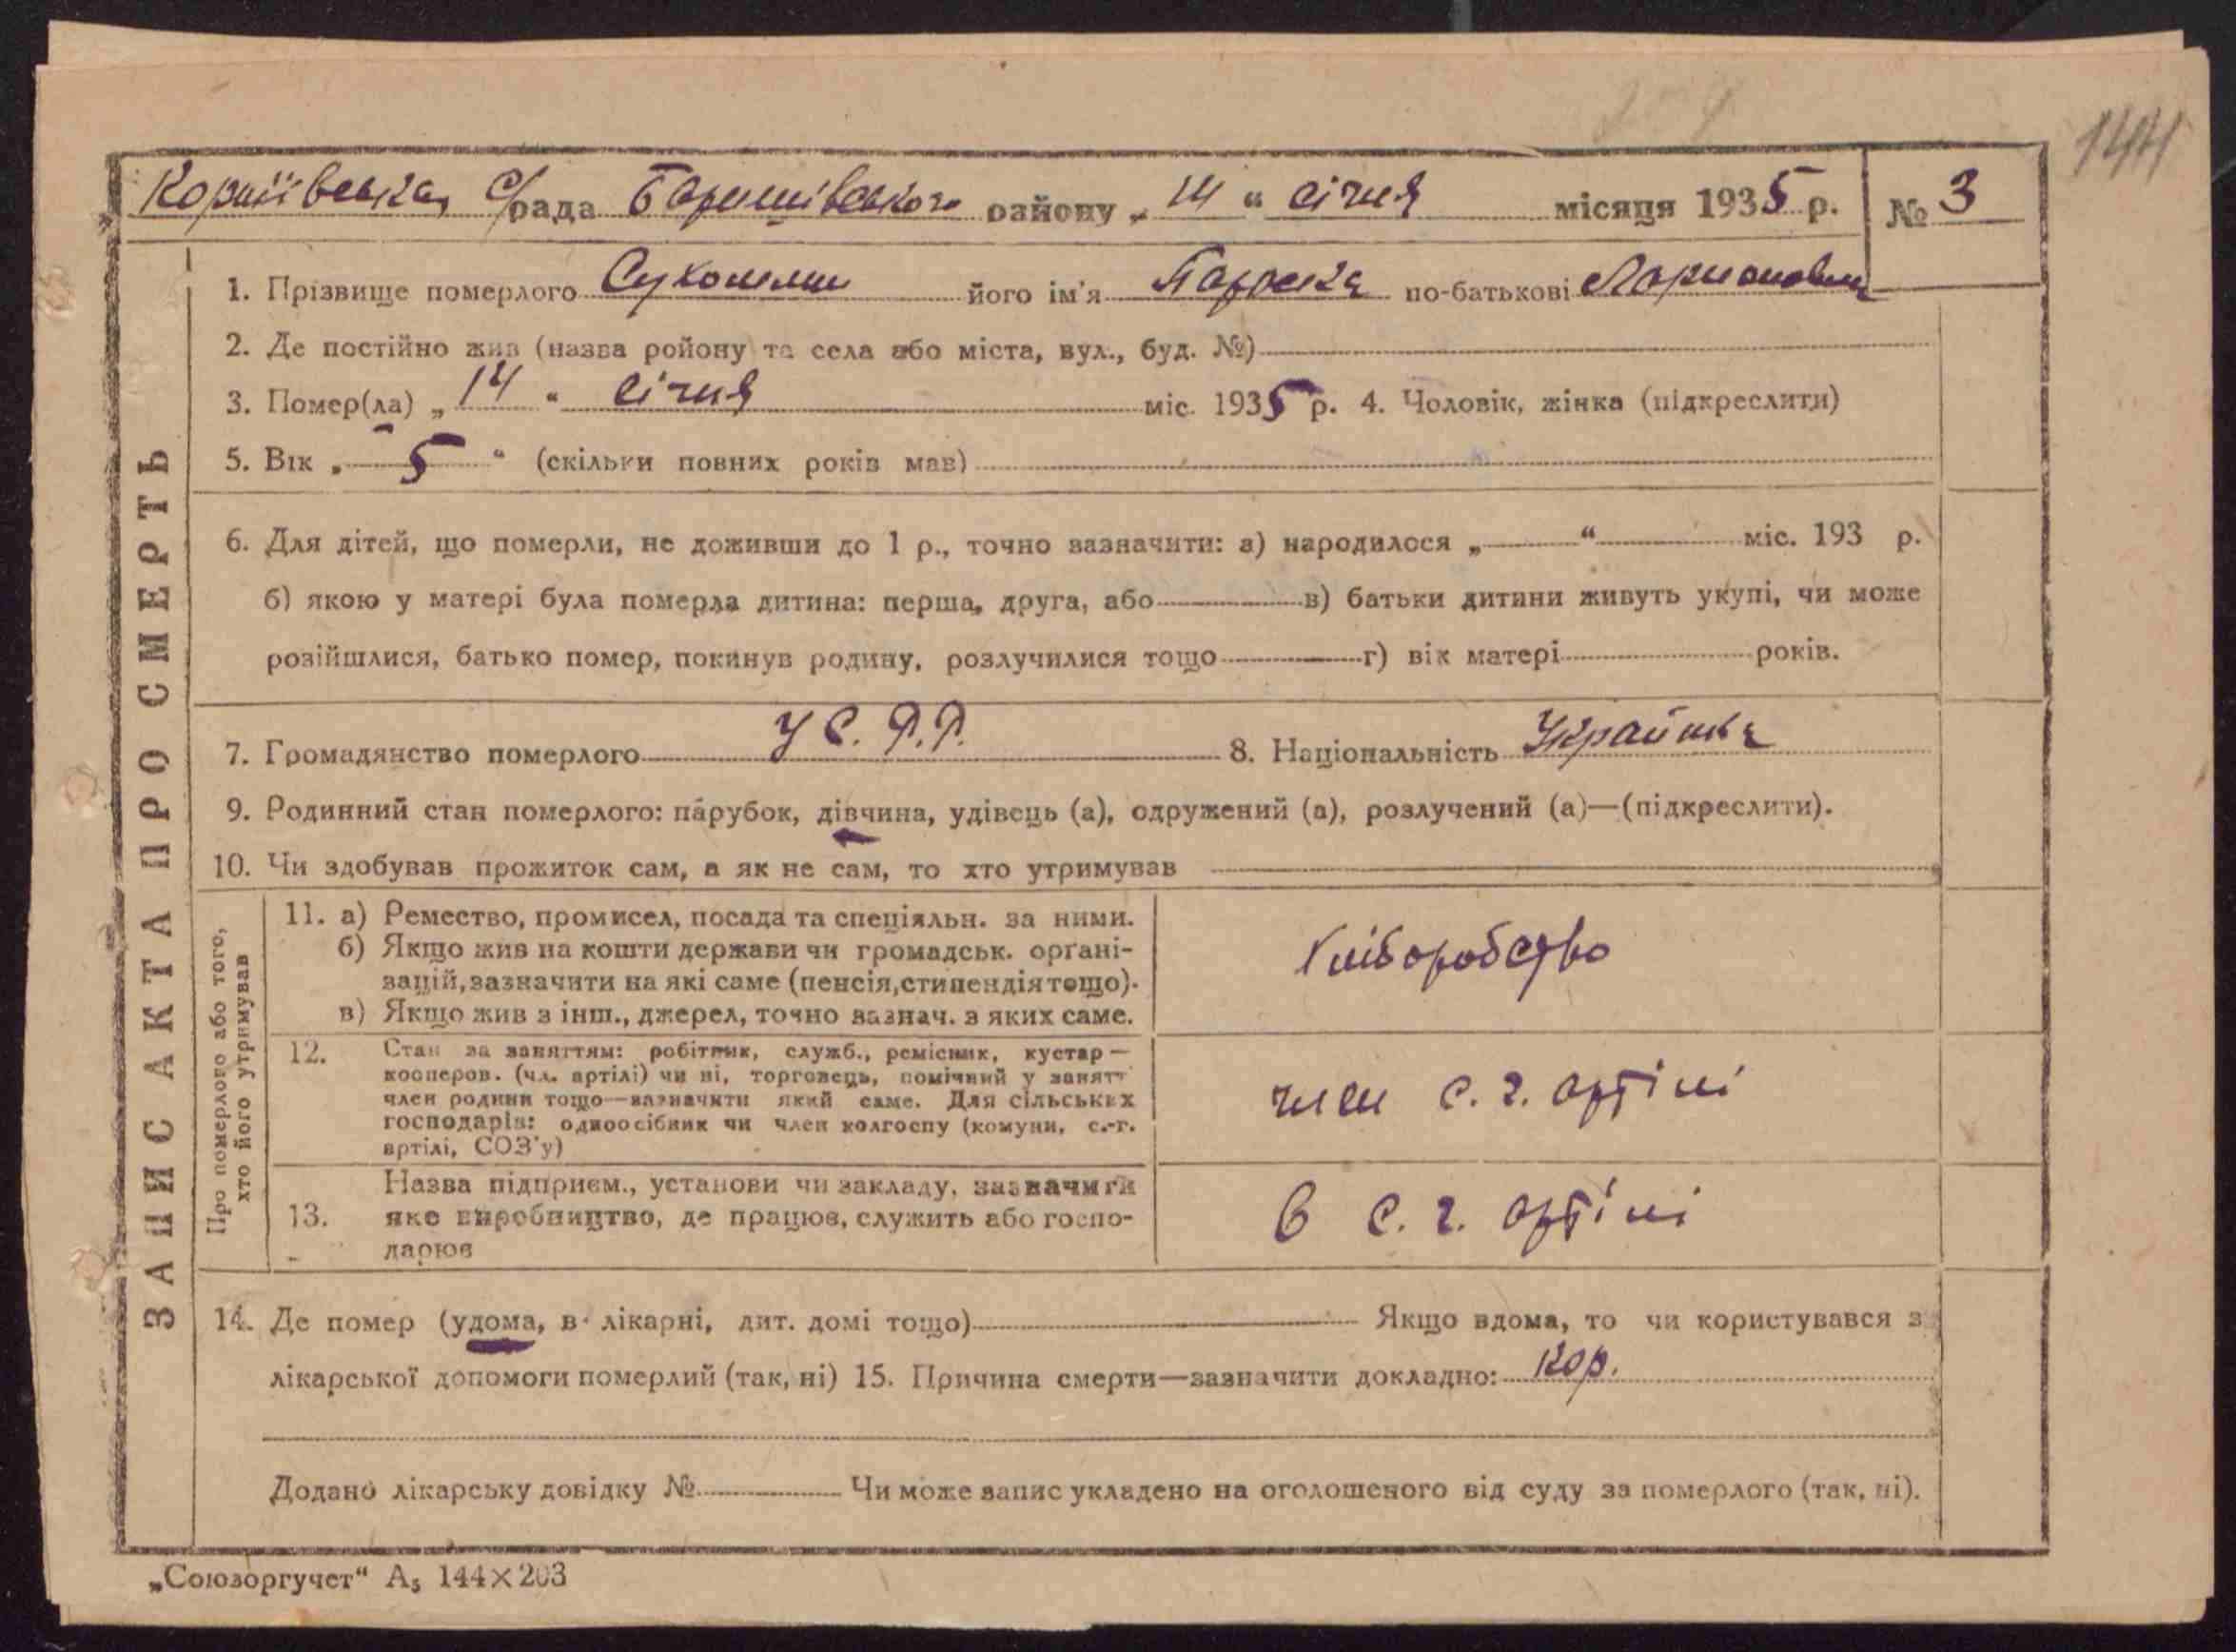 144
Корніївська с/рада Баришівського району „ 14 “ січня місяця 1935 р. № 3
ЗАПИС АКТА ПРО СМЕРТЬ
1. Прізвище померлого його ім'я Параска по-батькові Ларионовна
2. Де постійно жив (назва ройону та села або міста, вул., буд. №)
3. Помер(ла) „ 14 “ січня міс. 1935 р. 4. Чоловік, жінка (підкреслити)
5. Вік „ 5 “ (скільки повних років мав)
6. Для дітей, що померли, не доживши до 1 р., точно зазначити: а) народилося „ “ міс. 193 р.
б) якою у матері була померла дитина: перша, друга, або в) батьки дитини живуть укупі, чи може
розійшлися, батько помер, покинув родину, розлучилися тощо г) вік матері років.
7. Громадянство померлого У С. Р.Р. 8. Національність Українка
9. Родинний стан померлого: парубок, дівчина, удівець (а), одружений (а), розлучений (а)—(підкреслити).
10. Чи здобував прожиток сам, а як не сам, то хто утримував
Про померлого або того,
хто його утримував
11. а) Ремество, промисел, посада та спеціяльн. за ними.
б) Якщо жив на кошти держави чи громадськ. орґані-
зацій, зазначити на які саме (пенсія, стипендія тощо).
в) Якщо жив з інш., джерел, точно зазнач. з яких саме.
Хліборобство
12. Стан за заняттям: робітник, служб., ремісник, кустар—
кооперов. (чл. артілі) чи ні, торговець, помічний у занятт
член родини тощо—зазначити який саме. Для сільських
господарів: одноосібник чи член колгоспу (комуни, с.-г.
артілі, СОЗ'у)
член с. г. артілі
13. Назва підприєм., установи чи закладу, зазначити
яке виробництво, де працює, служить або госпо-
дарює
в с. г. артілі
14. Де помер (удома, в лікарні, дит. домі тощо) Якщо вдома, то чи користувався з
лікарської допомоги померлий (так, ні) 15. Причина смерти—зазначити докладно: Кор.
Додано лікарську довідку № Чи може запис укладено на оголошеного від суду за померлого (так, ні).
„Союзоргучет“ А₅ 144×203